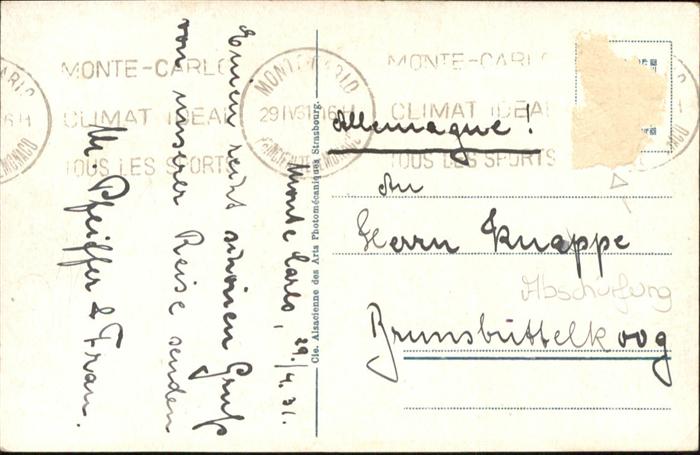 MONTE-CARLO
CLIMAT IDEAL
TOUS LES SPORTS
MONTE-CARLO
29 IV 31 16H
PRINCIPAUTE DE MONACO
MONTE-CARLO
CLIMAT IDEAL
TOUS LES SPORTS
Monte Carlo, 29./4.31.
Einen recht schönen Gruß
von unserer Reise senden
M. Pfeiffer & Frau.
Cie. Alsacienne des Arts Photomécaniques Strasbourg.
Allemagne!
An
Herrn Knappe
Abschurfung
Brunsbüttelkoog